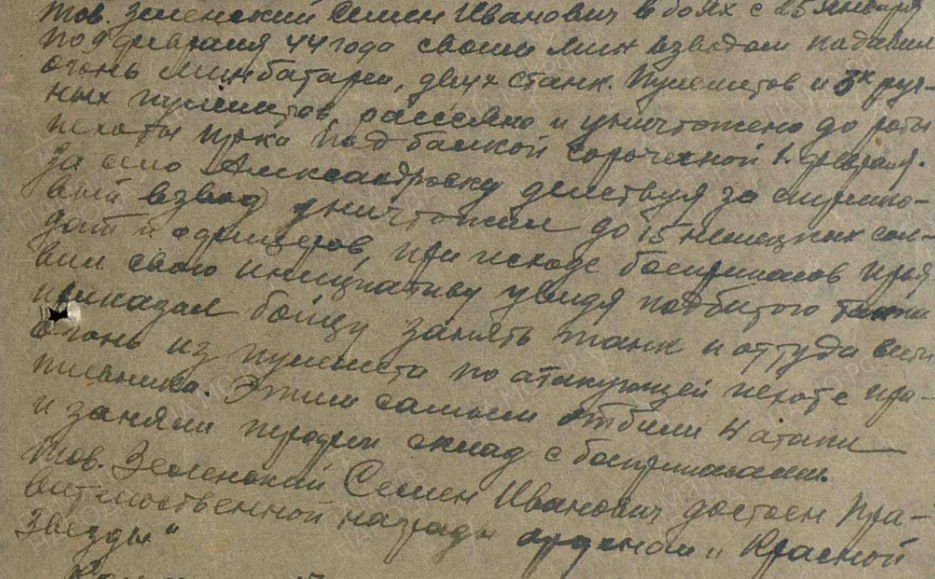 Тов. Зеленский Семен Иванович в боях с 25 января
по 9 февраля 44 года своим мин взводом подавил
огонь минбатареи, двух станк. пулеметов и 5к руч-
ных пулеметов, рассеяно и уничтожено до роты
пехоты прка под балкой Сорочехной 1 февраля.
За село Александровку действуя за стрелко-
вый взвод уничтожили до 15 немецких сол-
дат и офицеров, при исходе боеприпасов проя
вил свою инициативу увидя подбитого танка
приказал бойцу занять танк и оттуда вести
огонь из пулемета по атакующей пехоте про-
тивника. Этим самым отбили 4 атаки
и заняли трофеи склад с боеприпасами.
Тов. Зеленский Семен Иванович достоен пра-
вительственной награды орденом "Красной
Звезды"